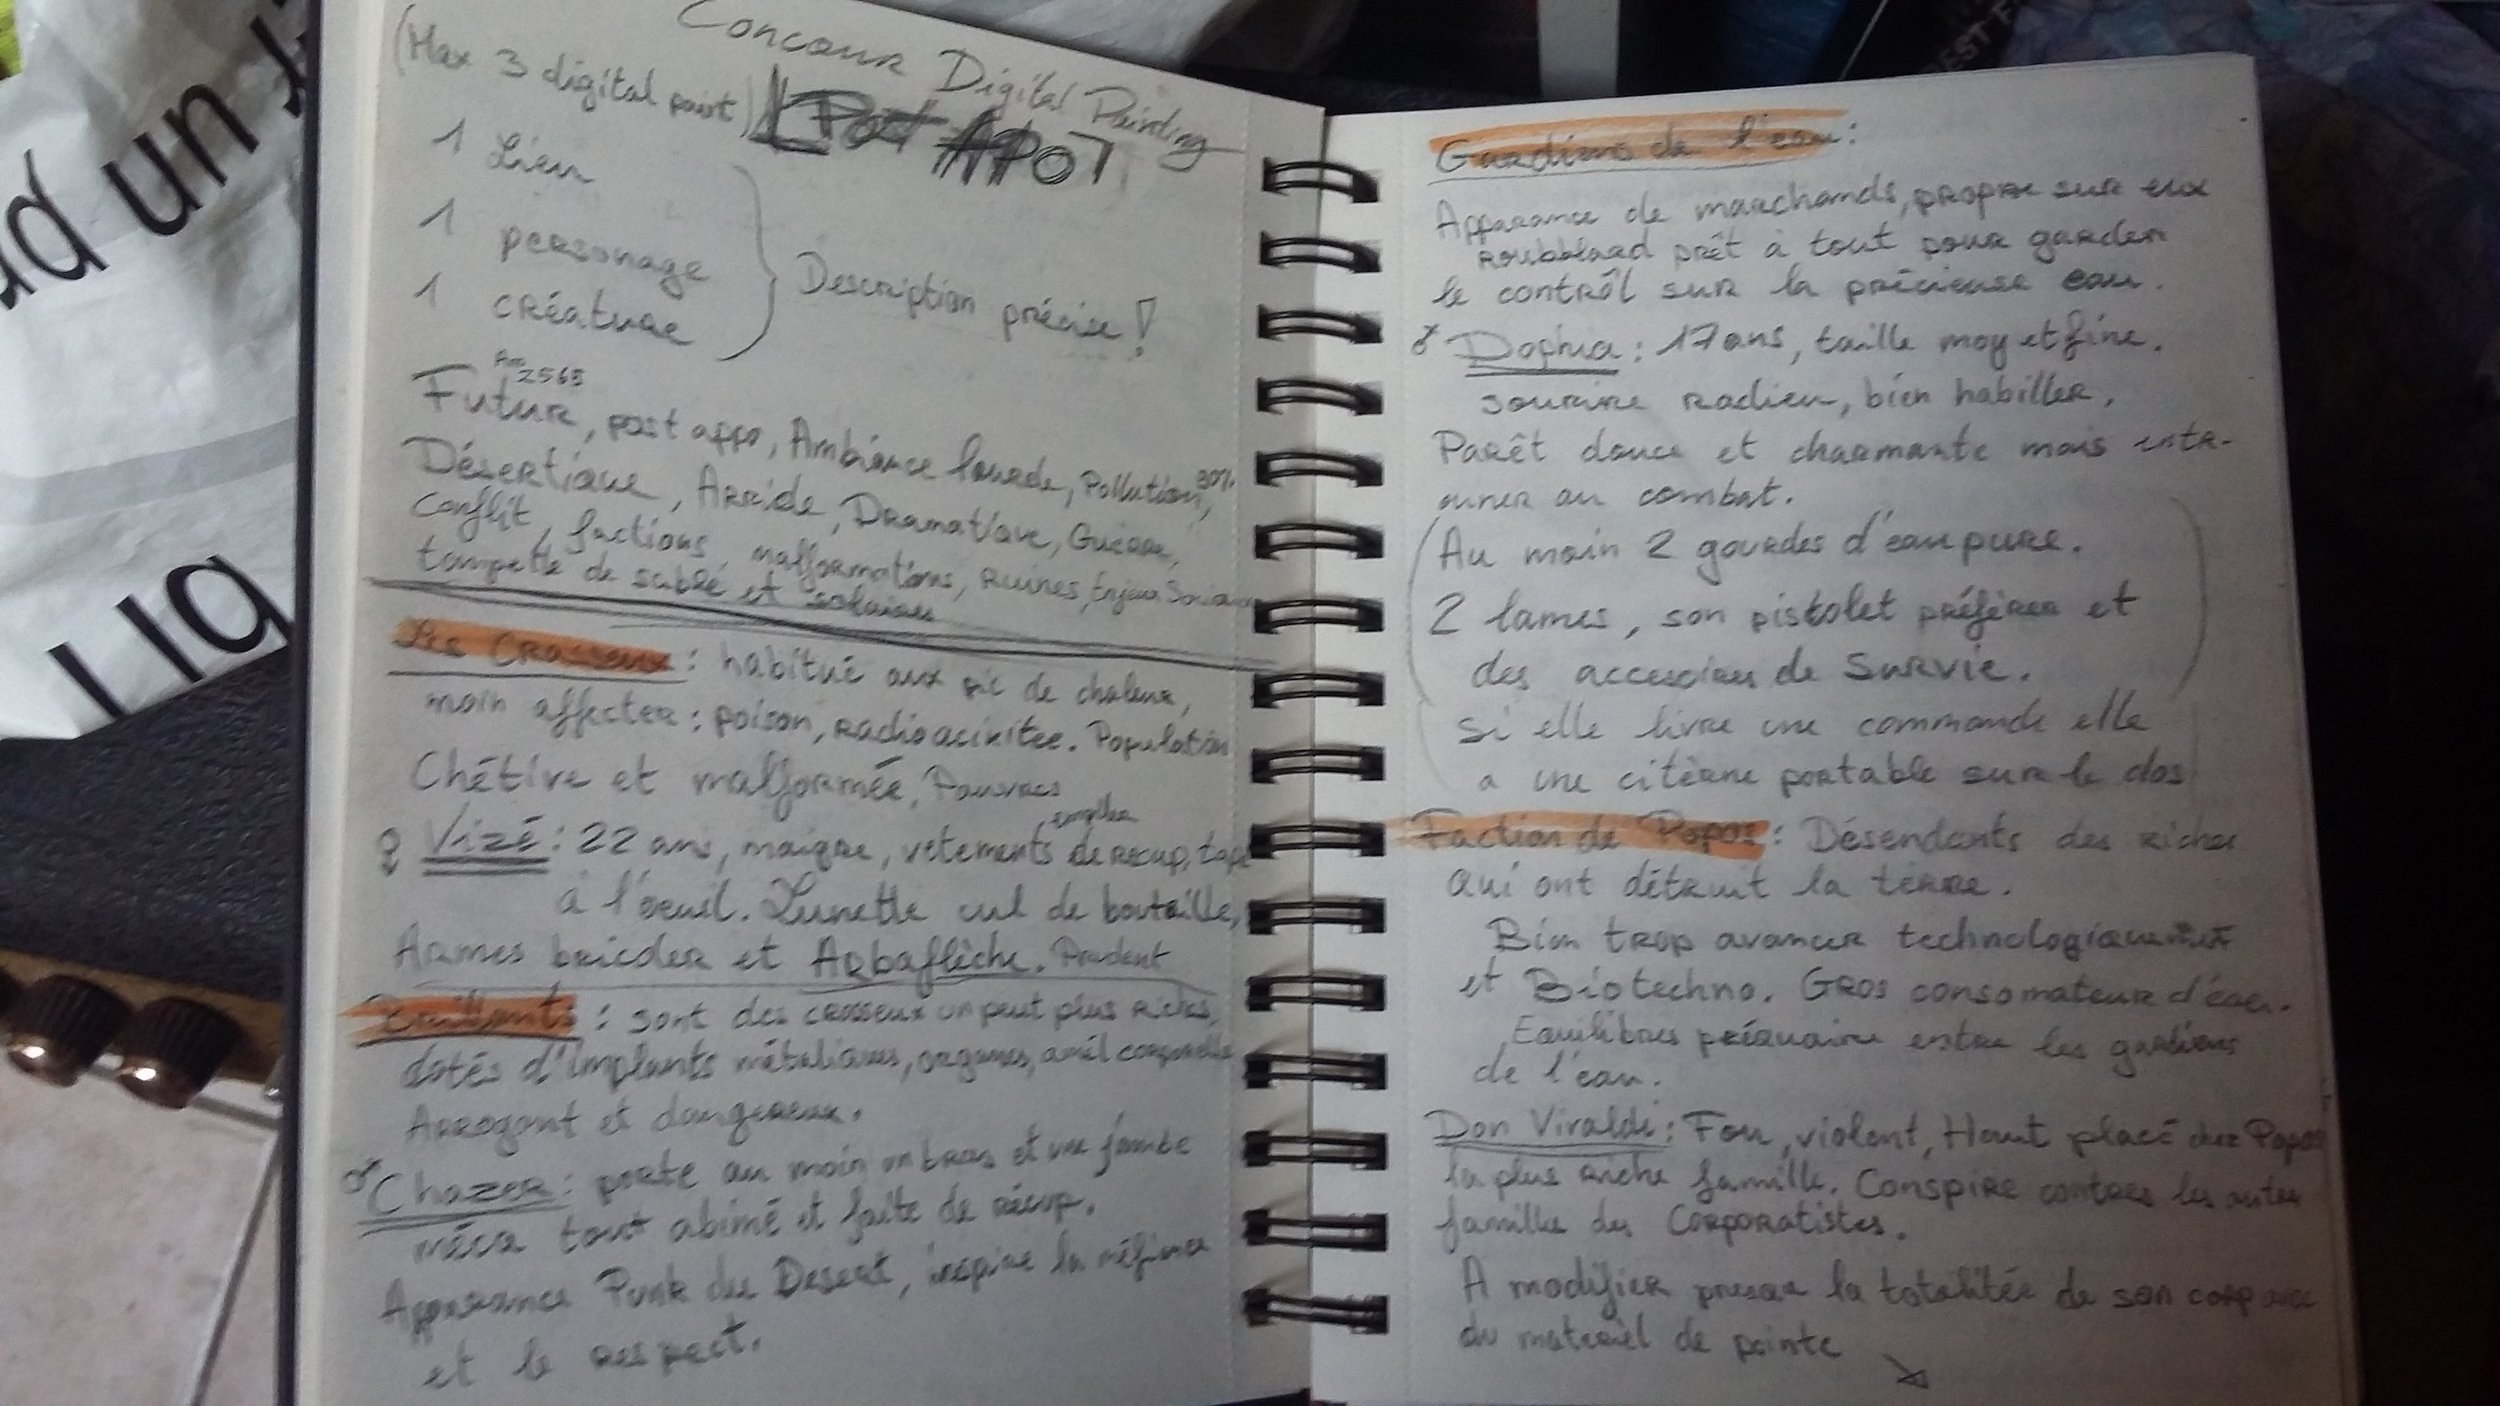 Concour Digital Painting
(Max 3 digital paint)
Post APO
1 Lieu
1 personage
1 créature
Description précise !
An 2565
Futur, post appo, Ambiance lourde, Pollution, 30%
Désertique, Arride, Dramatique, Guerre,
Conflit, factions, malformations, Ruines, Enjeux
tampette de sable et solaires
Les Crasseux : habitué aux pic de chaleur,
moin affecter : poison, radioacivitee. Population
Chétive et malformée, Pauvres
♀ Vizé : 22 ans, maigre, vetements simples de recup, tape
à l'oeuil. Lunette cul de boutaille,
Armes bricoler et Arbaflèche. Prudent
: sont des crasseux un peut plus riches,
dotés d'implants métaliques, organes, amél corporelle
Arrogant et dangereux.
♂ Chazer : porte au moin un bras et une jambe
méca tout abimé et faite de récup.
Apparance Punk du Desert, inspire la méfiance
et le respect.
Gardiens de l'eau :
Apparance de marchands, propre sur eux
roubblard prêt à tout pour garder
le contrôl sur la précieuse eau.
♂ Dophia : 17 ans, taille moy et fine.
sourire radieu, bien habiller,
Parêt douce et charmante mais entr-
ainer au combat.
(Au moin 2 gourdes d'eau pure.
2 lames, son pistolet préférer et
des accesoires de survie.
si elle livre une commande elle
a une citèrne portable sur le dos)
Faction de Popos : Désendants des riches
qui ont détruit la tèrre.
Bien trop avancer technologiquement
et Biotechno. Gros consomateur d'eau.
Equilibres préquaire entre les gardiens
de l'eau.
Don Viraldi : Fou, violent, Haut placé chez Popos
la plus riche famille. Conspire contres les autres
famille des Corporatistes.
A modifier presque la totalitée de son corp avec
du materiel de pointe